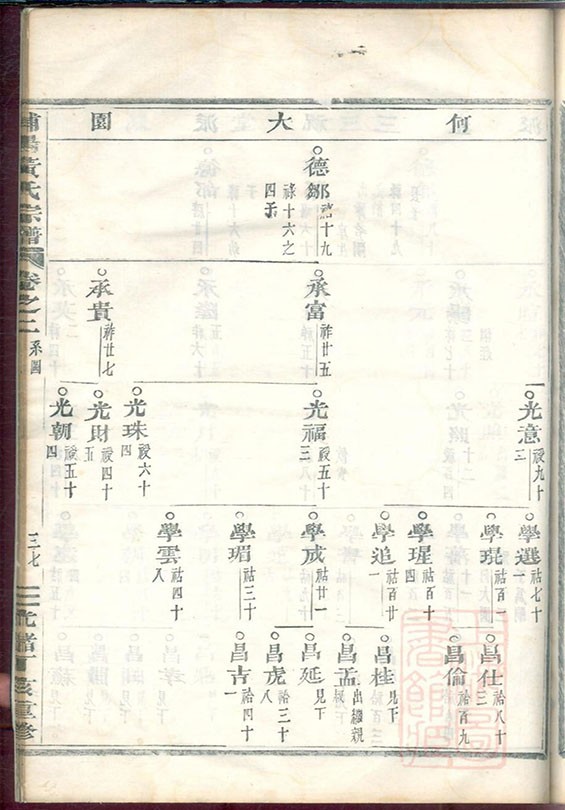 何 大 園
德鄒 祜十九 祿十六之四子
承富 祚廿五
承貴 祚廿七
光意 祋九十三
光福 祋五十八三
光珠 祋六十四
光財 祋四十五
光朝 祋五十四
學選 祜七十一
學琨 祜百二
學瑆 祜百十四
學追 祜百廿一
學成 祜廿一
學瑂 祜三十
學雲 祜四十八
昌仕 祫八十三
昌倫 祫百九
昌桂 見下
昌孟 出繼親
昌延 見下
昌虎 祫三十八
昌吉 祫四十一
黃氏宗譜 卷之二 系圖
三七
重修